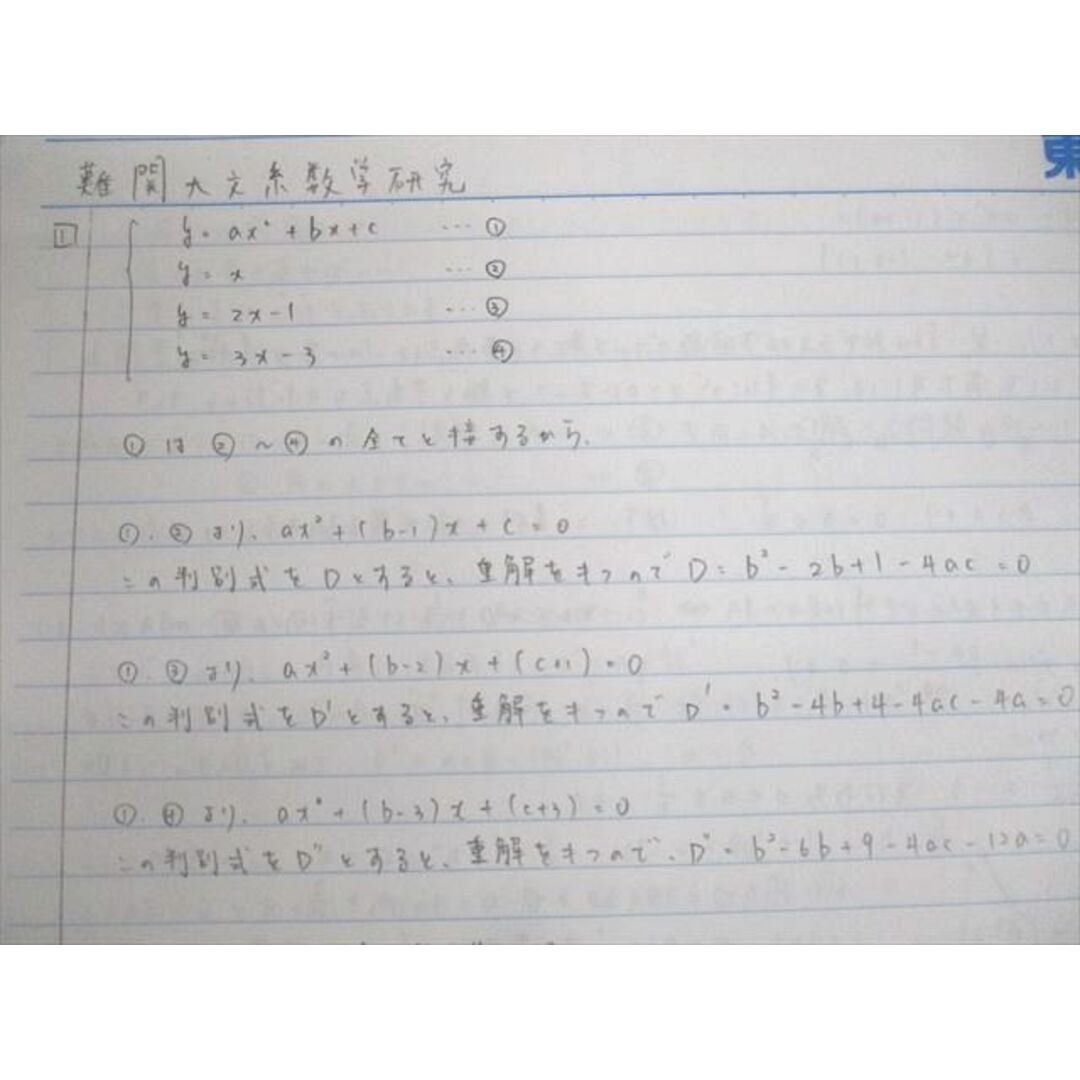 東
難関大文系数学研究
1 y=ax²+bx+c …①
y=x …②
y=2x-1 …③
y=3x-3 …④
①は②〜④の全てと接するから、
①.②より、ax²+(b-1)x+c=0
この判別式をDとすると、重解をもつのでD=b²-2b+1-4ac=0
①.③より、ax²+(b-2)x+(c+1)=0
この判別式をD'とすると、重解をもつのでD'=b²-4b+4-4ac-4a=0
①.④より、ax²+(b-3)x+(c+3)=0
この判別式をD"とすると、重解をもつので、D"=b²-6b+9-4ac-12a=0